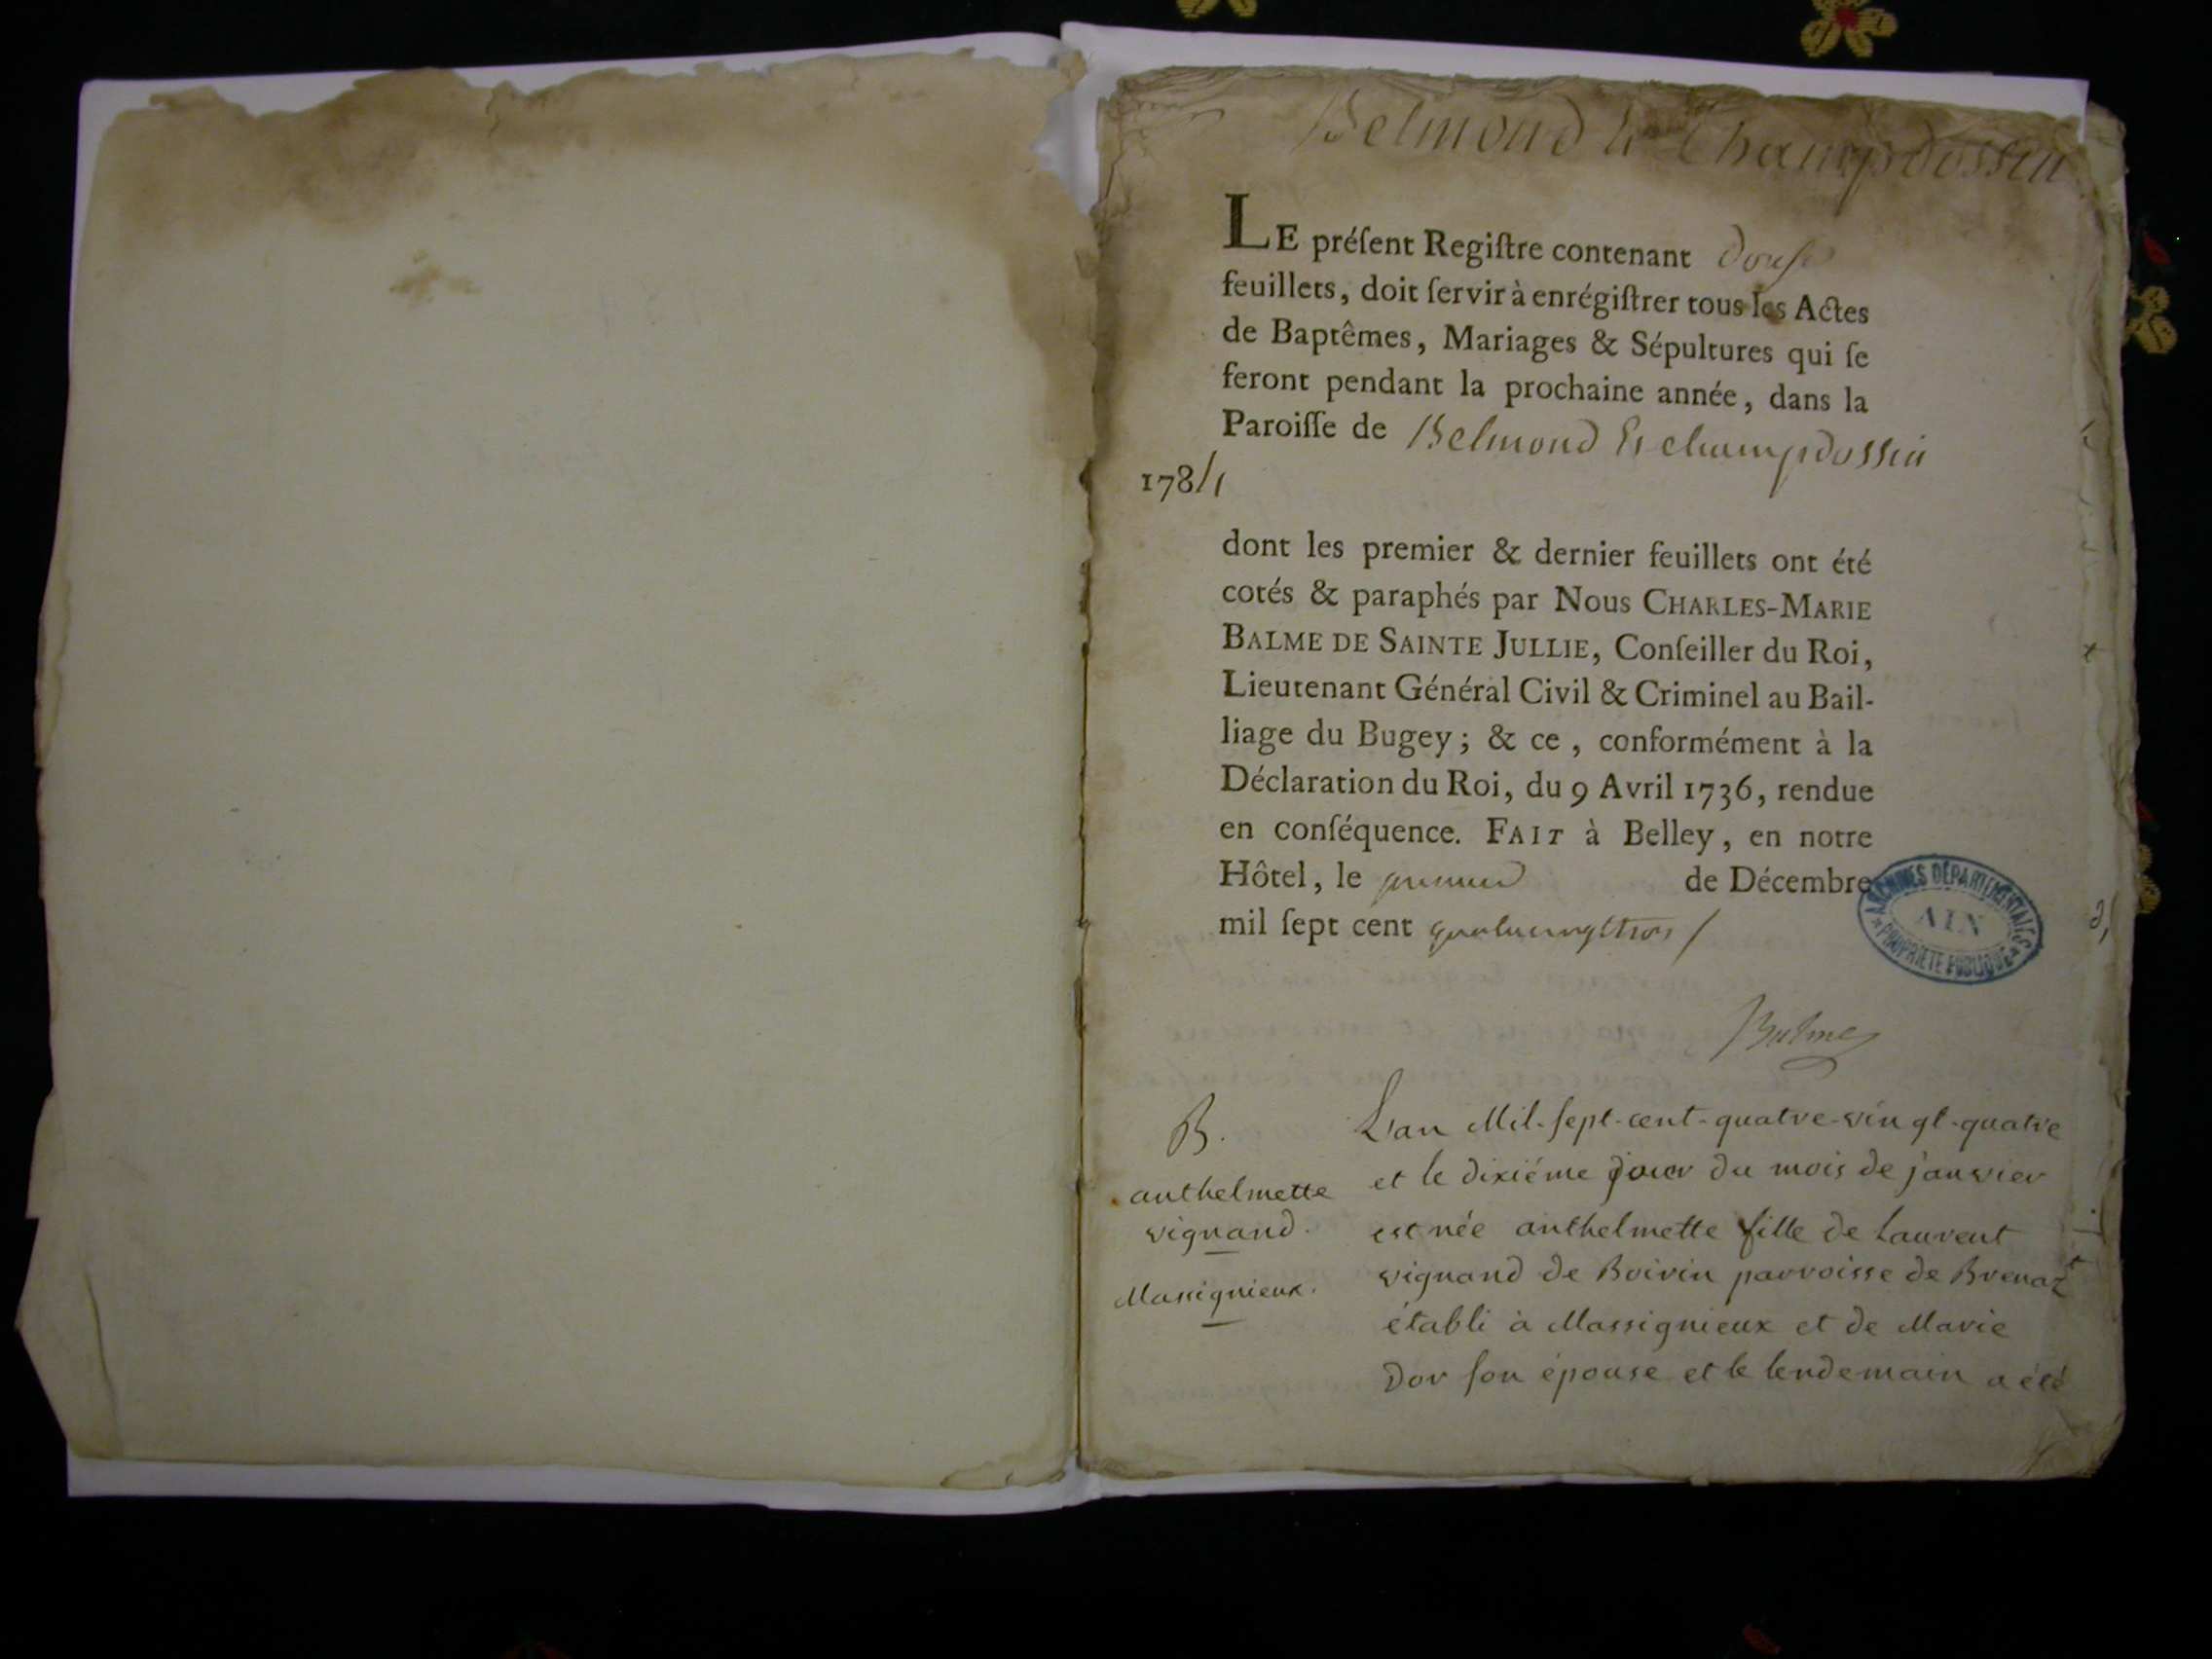 Belmond Et Champdossin
LE préſent Regiſtre contenant douſe
feuillets, doit ſervir à enrégiſtrer tous les Actes
de Baptêmes, Mariages & Sépultures qui ſe
feront pendant la prochaine année, dans la
Paroiſſe de Belmond Et champdossin
1784
dont les premier & dernier feuillets ont été
cotés & paraphés par Nous CHARLES-MARIE
BALME DE SAINTE JULLIE, Conſeiller du Roi,
Lieutenant Général Civil & Criminel au Bail-
liage du Bugey; & ce, conformément à la
Déclaration du Roi, du 9 Avril 1736, rendue
en conſéquence. FAIT à Belley, en notre
Hôtel, le premier de Décembre
mil ſept cent quatrevingttrois /
ARCHIVES DÉPARTEMENTALES
AIN
PROPRIÉTÉ PUBLIQUE
Balme
B.
anthelmette
vignand.
Massignieux.
L'an Mil-ſept-cent-quatre-vingt-quatre
et le dixiéme jour du mois de janvier
est née anthelmette fille de Laurent
vignand de Boirin parroisse de Brenaz
établi à Massignieux et de Marie
Dor ſon épouse et le lendemain a été